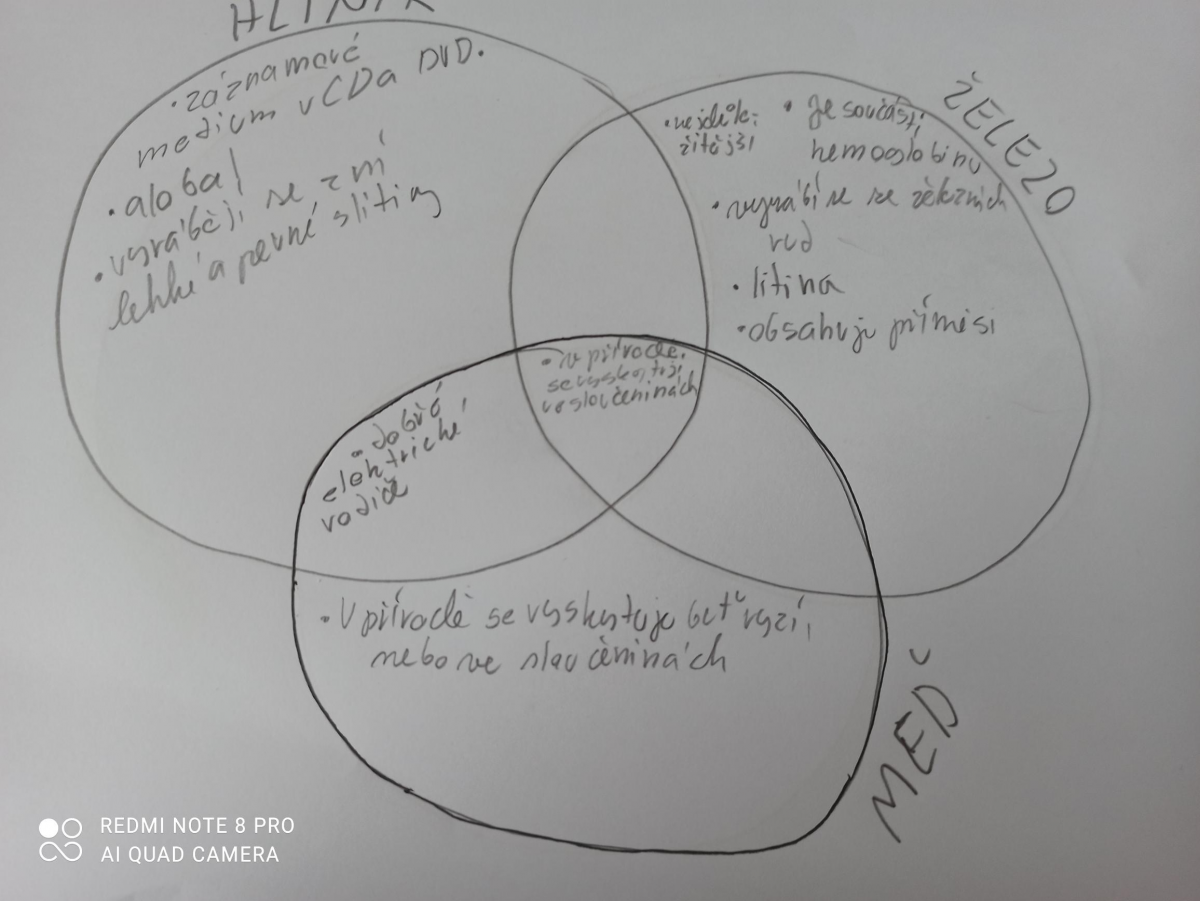 HLINÍK
• záznamové
medium v CD a DVD.
• alobal
• vyrábějí se z ní
lehké a pevné slitiny
ŽELEZO
• nejdůle-
žitější
• je součástí
hemoglobinu
• vyrábí se ze železných
rud
• litina
• obsahuje příměsi
• v přírodě
se vyskytují
ve sloučeninách
• dobré
elektrické
vodiče
• V přírodě se vyskytuje buť ryzí,
nebo ve sloučeninách
MĚĎ
REDMI NOTE 8 PRO
AI QUAD CAMERA